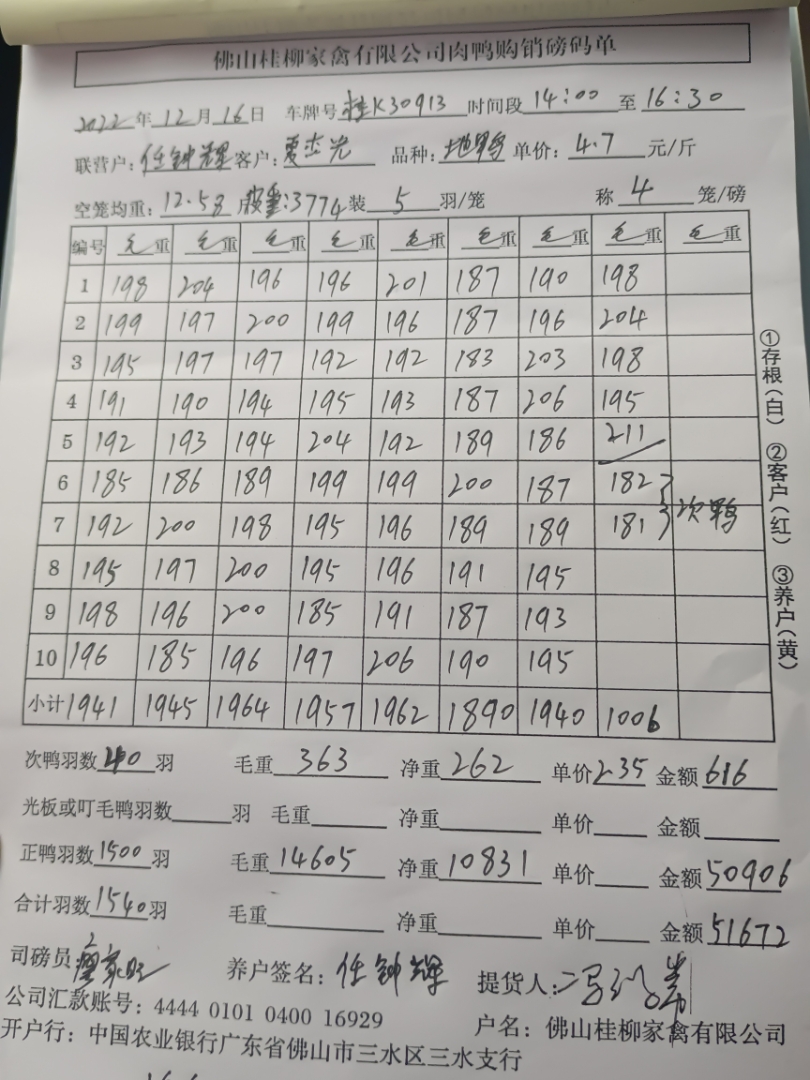 佛山桂柳家禽有限公司肉鸭购销磅码单
2022年12月16日 车牌号桂K30913 时间段14:00至16:30
联营户:任钟辉 客户: 品种: 单价:4.7元/斤
空笼均重:12.58 皮重:3774 装5羽/笼 称4笼/磅
编号 毛重 毛重 毛重 毛重 毛重 毛重 毛重 毛重 毛重
1 198 204 196 196 201 187 190 198
2 199 197 200 199 196 187 196 204
3 195 197 197 192 192 183 203 198
4 191 190 194 195 193 187 206 195
5 192 193 194 204 192 189 186 211
6 185 186 189 199 199 200 187 182
7 192 200 198 195 196 189 189 181 次鸭
8 195 197 200 195 196 191 195
9 198 196 200 185 191 187 193
10 196 185 196 197 206 190 195
小计 1941 1945 1964 1957 1962 1890 1940 1006
①存根(白) ②客户(红) ③养户(黄)
次鸭羽数40羽 毛重363 净重262 单价2.35 金额616
光板或叮毛鸭羽数 羽 毛重 净重 单价 金额
正鸭羽数1500羽 毛重14605 净重10831 单价 金额50906
合计羽数1540羽 毛重 净重 单价 金额51672
司磅员 养户签名:任钟辉 提货人:
公司汇款账号: 4444 0101 0400 16929 户名: 佛山桂柳家禽有限公司
开户行: 中国农业银行广东省佛山市三水区三水支行